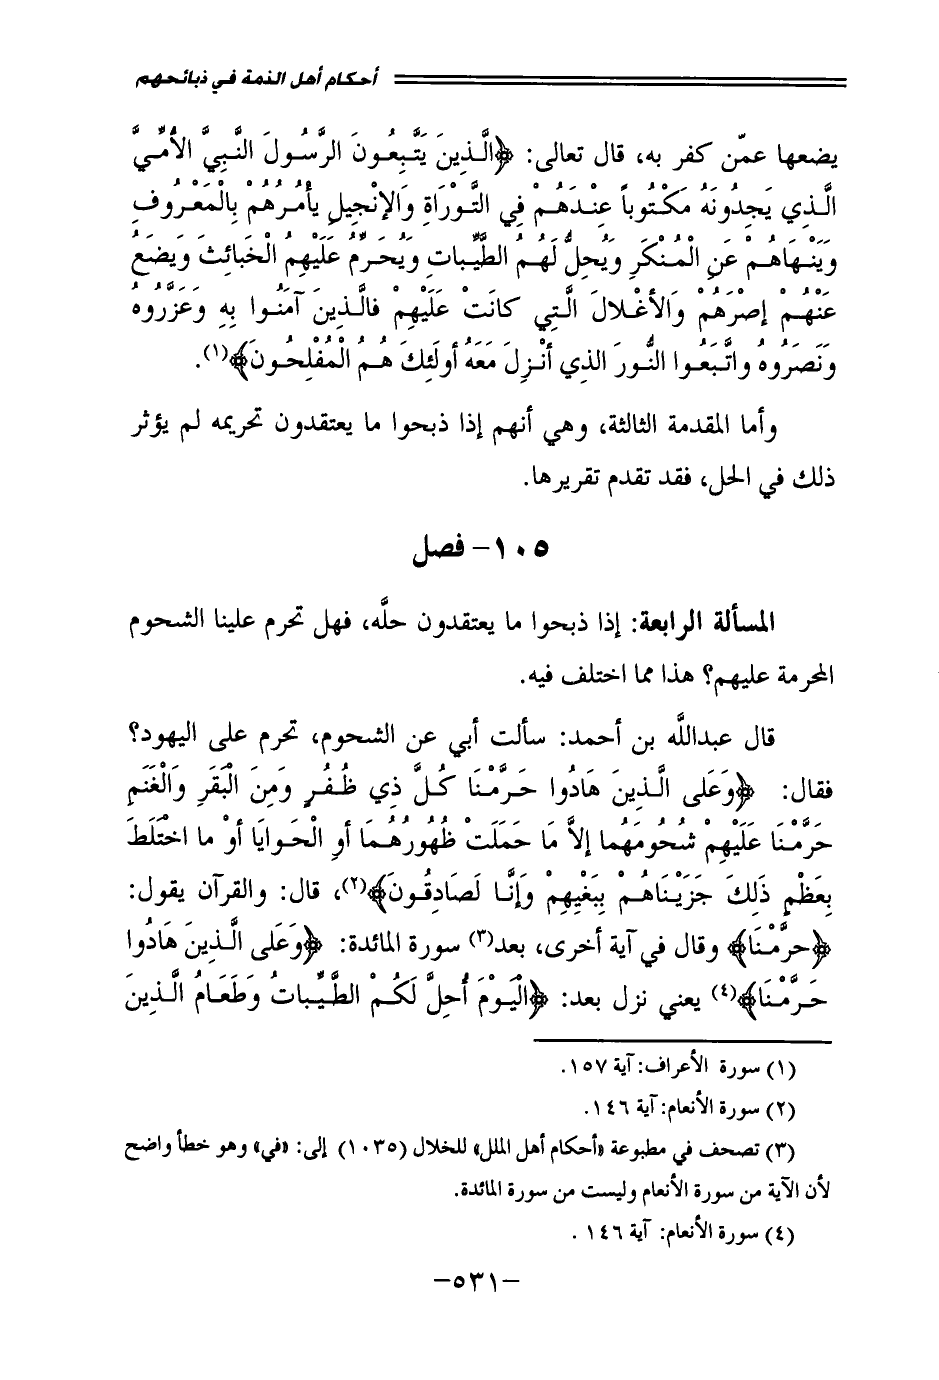 أحكام أهل الذمة في ذبائحهم
يضعها عمّن كفر به، قال تعالى: ﴿الَّذِينَ يَتَّبِعُونَ الرَّسُولَ النَّبِيَّ الأُمِّيَّ
الَّذِي يَجِدُونَهُ مَكْتُوباً عِنْدَهُمْ فِي التَّوْرَاةِ وَالإنْجِيلِ يأمُرُهُمْ بِالْمَعْرُوفِ
وَيَنْهَاهُمْ عَنِ الْمُنْكَرِ وَيُحِلُّ لَهُمُ الطَّيِّبَاتِ وَيُحَرِّمُ عَلَيْهِمُ الْخَبائِثَ وَيَضَعُ
عَنْهُمْ إصْرَهُمْ وَالأغْلالَ الَّتِي كانَتْ عَلَيْهِمْ فالَّذِينَ آمَنُوا بِهِ وَعَزَّرُوهُ
وَنَصَرُوهُ واتَّبَعُوا النُّورَ الذي أنْزِلَ مَعَهُ أولَئِكَ هُمُ الْمُفْلِحُونَ﴾(١).
وأما المقدمة الثالثة، وهي أنهم إذا ذبحوا ما يعتقدون تحريمه لم يؤثر
ذلك في الحل، فقد تقدم تقريرها.
١٠٥- فصل
المسألة الرابعة: إذا ذبحوا ما يعتقدون حلَّه، فهل تحرم علينا الشحوم
المحرمة عليهم؟ هذا مما اختلف فيه.
قال عبداللَّه بن أحمد: سألت أبي عن الشحوم، تحرم على اليهود؟
فقال: ﴿وَعَلى الَّذِينَ هَادُوا حَرَّمْنَا كُلَّ ذِي ظُفُرٍ وَمِنَ الْبَقَرِ وَالْغَنَمِ
حَرَّمْنَا عَلَيْهِمْ شُحُومَهُما إلاَّ مَا حَمَلَتْ ظُهُورُهُمَا أوِ الْحَوايَا أوْ ما اخْتَلَطَ
بِعَظْمٍ ذَلِكَ جَزَيْنَاهُمْ بِبَغْيِهِمْ وَإنَّا لَصَادِقُونَ﴾(٢)، قال: والقرآن يقول:
﴿حرَّمْنَا﴾ وقال في آية أخرى، بعد(٣) سورة المائدة: ﴿وَعَلى الَّذِينَ هَادُوا
حَرَّمْنَا﴾(٤) يعني نزل بعد: ﴿الْيَوْمَ أُحِلَّ لَكُمْ الطَّيِّباتُ وَطَعَامُ الَّذِينَ
(١) سورة الأعراف: آية ١٥٧.
(٢) سورة الأنعام: آية ١٤٦.
(٣) تصحف في مطبوعة «أحكام أهل الملل» للخلال (١٠٣٥) إلى: «في» وهو خطأ واضح
لأن الآية من سورة الأنعام وليست من سورة المائدة.
(٤) سورة الأنعام: آية ١٤٦ .
-٥٣١-